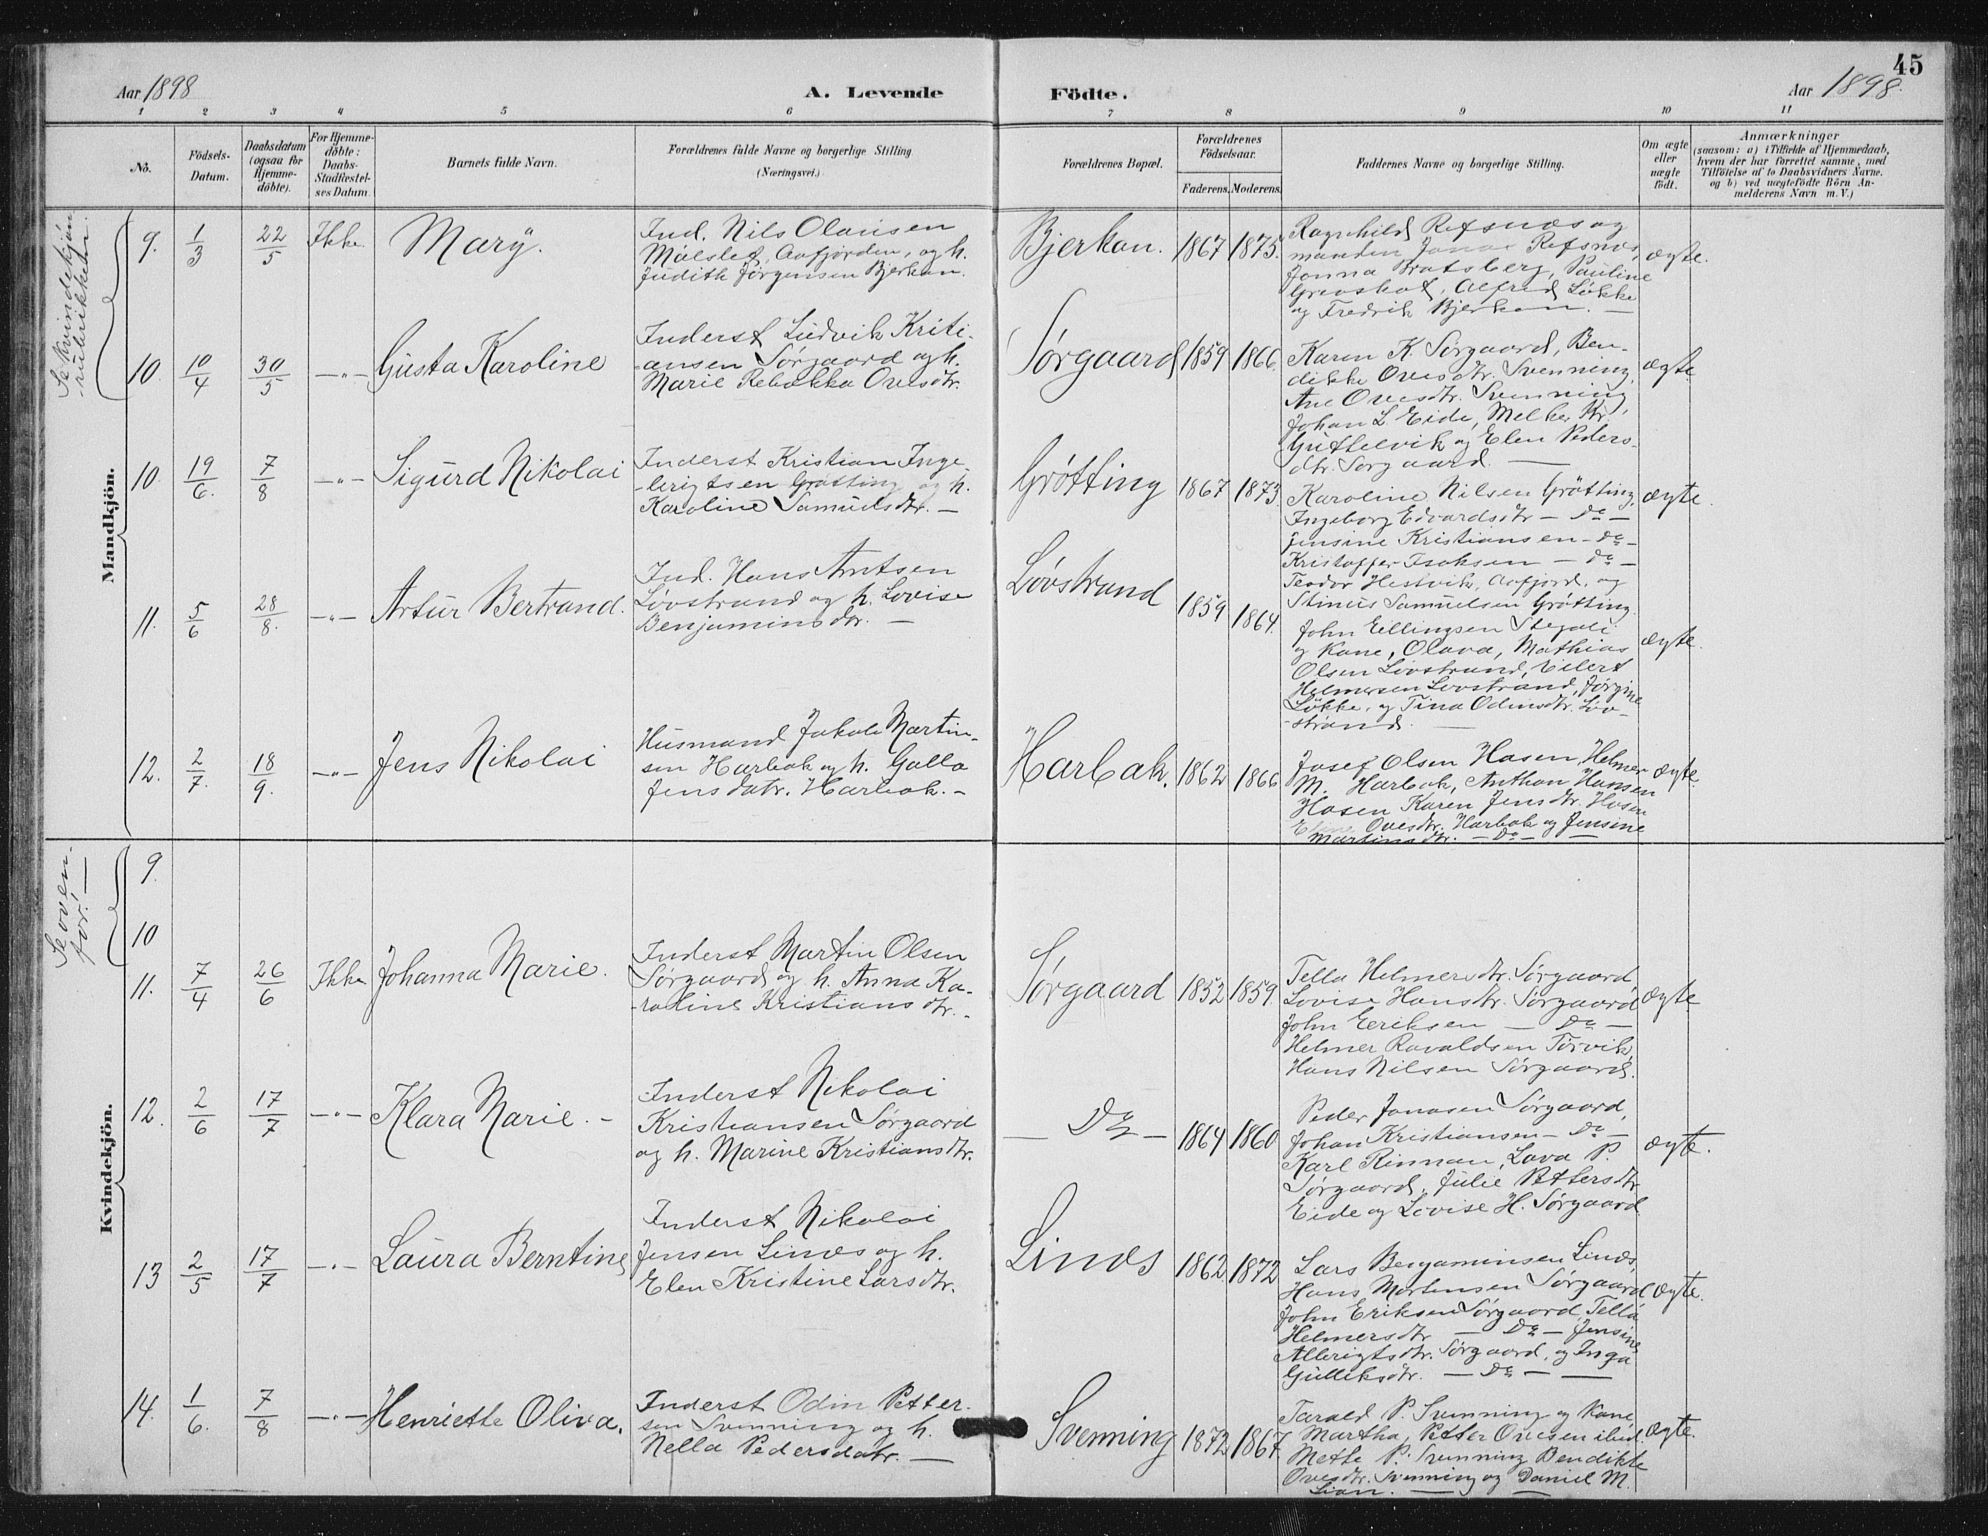 45
Aar 1898
A. Levende
Födte.
Aar 1898.
1 2 3 4 5 6 7 8 9 10 11
No.
Födsels-
Datum.
Daabsdatum
(ogsaa for
Hjemme-
döbte).
For Hjemme-
döbte:
Daabs-
Stadfæstel-
ses Datum.
Barnets fulde Navn.
Forældrenes fulde Navne og borgerlige Stilling
(Næringsvei.)
Forældrenes Bopæl.
Forældrenes
Födselsaar.
Faderens. Moderens.
Faddernes Navne og borgerlige Stilling.
Om ægte
eller
uægte
födt.
Anmærkninger
(saasom: a) i Tilfælde af Hjemmedaab,
hvem der har forrettet samme, med
Tilföielse af to Daabsvidners Navne.
og b) ved uægtefödte Börn An-
melderens Navn m.V.)
Mandkjön.
Se kvindekjøn
-rubrikken.
9. 1/3 22/5 Ikke. Mary.
Ind. Nils Olausen
Målslet, Aafjorden, og h.
Judith Jørgensen Bjerkan.
Bjerkan. 1867 1875.
Ragnhild Refsnæs og
manden Jonas Refsnæs,
Jonna Bratsberg, Pauline
Grevskot, Alfred Løkke
og Fredrik Bjerkan. —
ægte.
10. 10/4 30/5 —"— Gusta Karoline
Inderst Ludvik Kriti-
ansen Sørgaard og h.
Marie Rebakka Ovesdtr.
Sørgaard 1859 1866.
Karen K. Sørgaard, Ben-
dikke Ovesdtr. Svenning,
Ane Ovesdtr. Svenning,
Johan L. Eide, Melker Kr.
Guttelvik og Elen Peders-
dtr. Sørgaard. —
ægte
10. 19/6. 7/8 —"— Sigurd Nikolai
Inderst Kristian Inge-
-brigtsen Grøtting og h.
Karoline Samuelsdtr. —
Grøtting 1867 1873.
Karoline Nilsen Grøtting,
Ingeborg Edvardsdtr — Do —
Jensine Kristiansen — Do —
Kristoffer Isaksen — Do —
Teodor Hestvik, Aafjord, og
Stinus Samuelsen Grøtting.
ægte.
11. 5/6 28/8. —"— Artur Bertrand.
Ind. Hans Antsen
Løvstrand og h. Lovise
Benjaminsdtr. —
Løvstrand 1859 1864.
John Ellingsen Stegali
og Kone, Olava, Mathias
Olsen Løvstrand, Eilert
Helmersen Løvstrand, Jørgine
Løkke, og Tina Odinsdtr. Løv-
-strand. —
ægte.
12. 2/7. 18/9. —"— Jens Nikolai
Husmand Jakob Martin-
sen Harbak og h. Golla
Jensdatr. Harbak. —
Harbak. 1862 1866
Josef Olsen Hasen, Helmer
M. Harbak, Anthon Hansen
Hosen Karen Jensdtr. Hosen
Ovesdtr. Harbak og Jensine
Martinsdtr. — Do — —
ægte.
Kvindekjön.
Se oven-
for! —
9.
10
11. 7/4 26/6 Ikke Johanna Marie.
Inderst Martin Olsen
Sørgaard og h. Anna Ka-
-roline Kristiansdtr. -
Sørgaard 1852 1859.
Tella Helmersdtr. Sørgaard,
Lovise Hansdtr. Sørgaard
John Eeriksen — Do —
Helmer Ravaldsen Tørvik,
Hans Nilsen Sørgaard.
ægte.
12. 2/6 17/7 —"— Klara Marie. -
Inderst Nikolai
Kristiansen Sørgaard
og h. Marine Kristiansdtr.
— Do — 1864 1860
Peder Jonasen Sørgaard,
Johan Kristiansen — Do —
Karl Rinnan, Lava P.
Sørgaard, Julie Pettersdtr
Eide og Lovise H. Sørgaard
ægte.
13 2/5 17/7 —"— Laura Berntine
Inderst Nikolai
Jensen Linæs og h.
Elen Kristine Larsdtr.
Linæs 1862 1872
Lars Benjaminsen Linæs,
Hans Mortensen Sørgaard
John Eriksen Sørgaard, Tella
Helmersdtr — Do — Jensine
Albrigtsdtr. Sørgaard, og Inga
Gulleksdtr. — Do — —
ægte.
14. 1/6. 7/8 —"— Henriette Oliva.
Inderst Odin Petter-
sen Svenning og h.
Nella Pedersdatr. —
Svenning 1872 1867.
Tarald P. Svenning og Kone
Martha, Petter Ovesen ibid.
Mette P. Svenning Bendikte
Ovesdtr. Svenning og Daniel M.
Lian. — —
ægte.